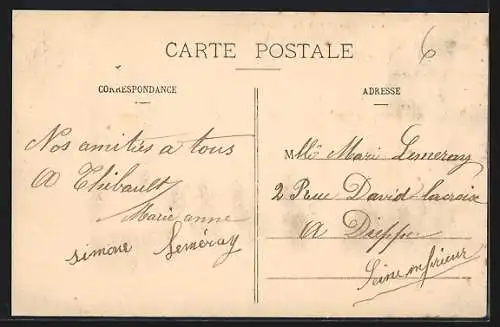 CARTE POSTALE
6
CORRESPONDANCE
ADRESSE
Nos amitiés a tous
A Thibault
Marie anne
simone Leméray
Mlle Marie Lemeray
2 Rue David lacroix
A Dieppe
Seine inférieur